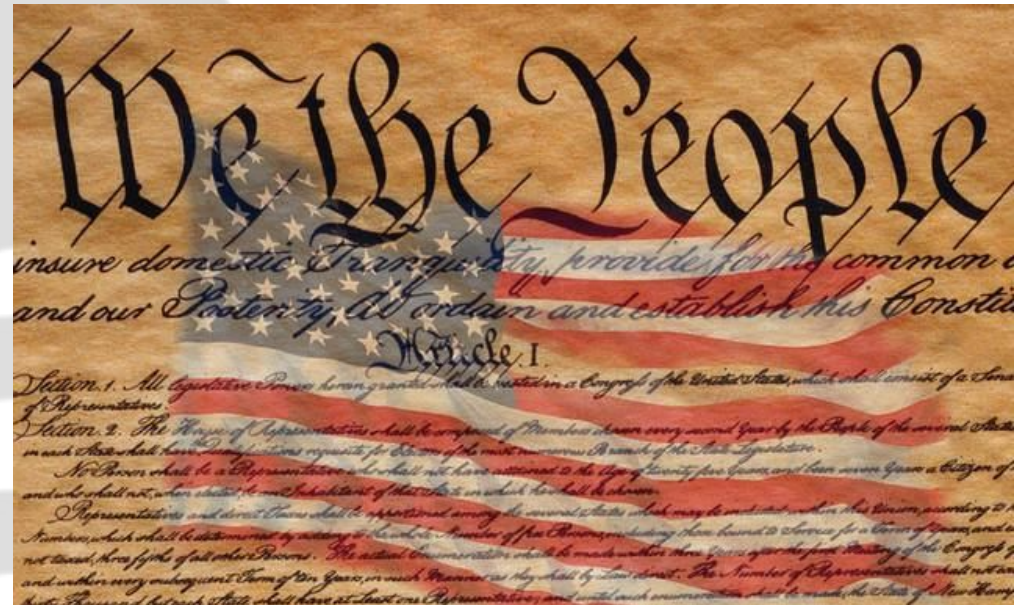 We the People
insure domestic Tranquility, provide for the common
and our Posterity, do ordain and establish this Constitu
Article. I.
Section. 1. All legislative Powers herein granted shall be vested in a Congress of the United States, which shall consist of a Sena
of Representatives.
Section. 2. The House of Representatives shall be composed of Members chosen every second Year by the People of the several States
in each State shall have the Qualifications requisite for Electors of the most numerous Branch of the State Legislature.
No Person shall be a Representative who shall not have attained to the Age of twenty five Years, and been seven Years a Citizen of
and who shall not, when elected, be an Inhabitant of that State in which he shall be chosen.
Representatives and direct Taxes shall be apportioned among the several States which may be included within this Union, according to
Numbers, which shall be determined by adding to the whole Number of free Persons, including those bound to Service for a Term of Years, and
not taxed, three fifths of all other Persons. The actual Enumeration shall be made within three Years after the first Meeting of the Congress
and within every subsequent Term of ten Years, in such Manner as they shall by Law direct. The Number of Representatives shall not
Thousand, but each State shall have at Least one Representative; and until such enumeration shall be made, the State of New Hamp